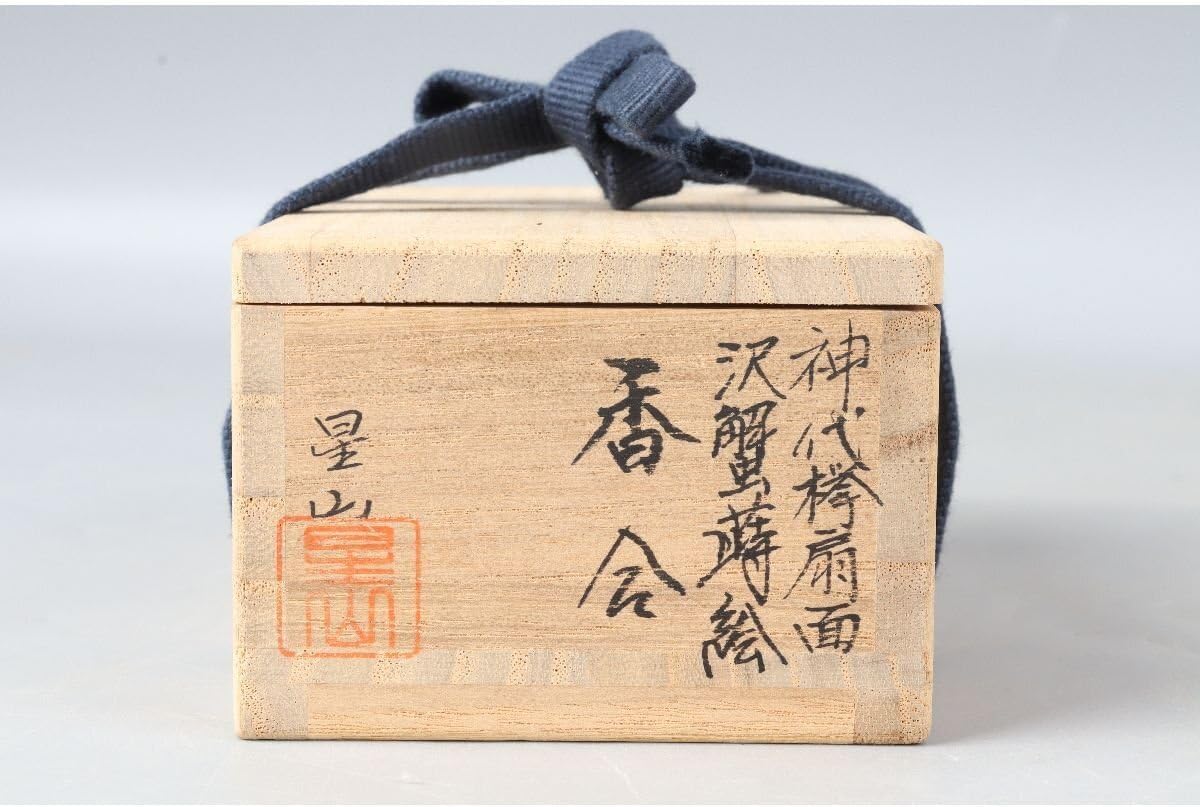 神代欅扇面
沢蟹蒔絵
香合
星山
星山